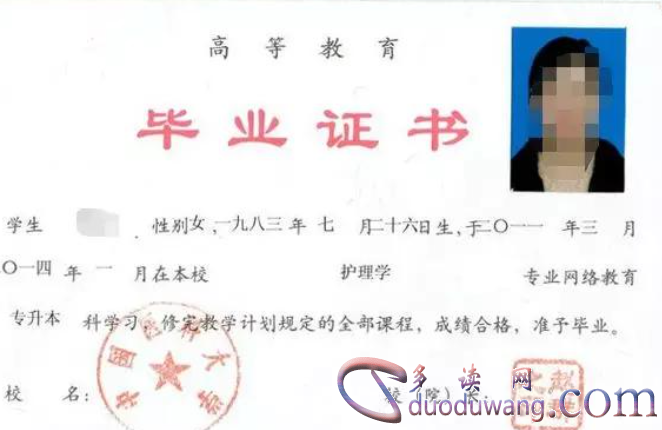 高等教育
毕业证书
学生 性别女,一九八三年七月二十六日生,于二〇一一年三月
〇一四年一月在本校 护理学 专业网络教育
专升本 科学习,修完教学计划规定的全部课程,成绩合格,准予毕业。
校 名: 校(院)长:
中国医科大学
多读网
duoduwang.com